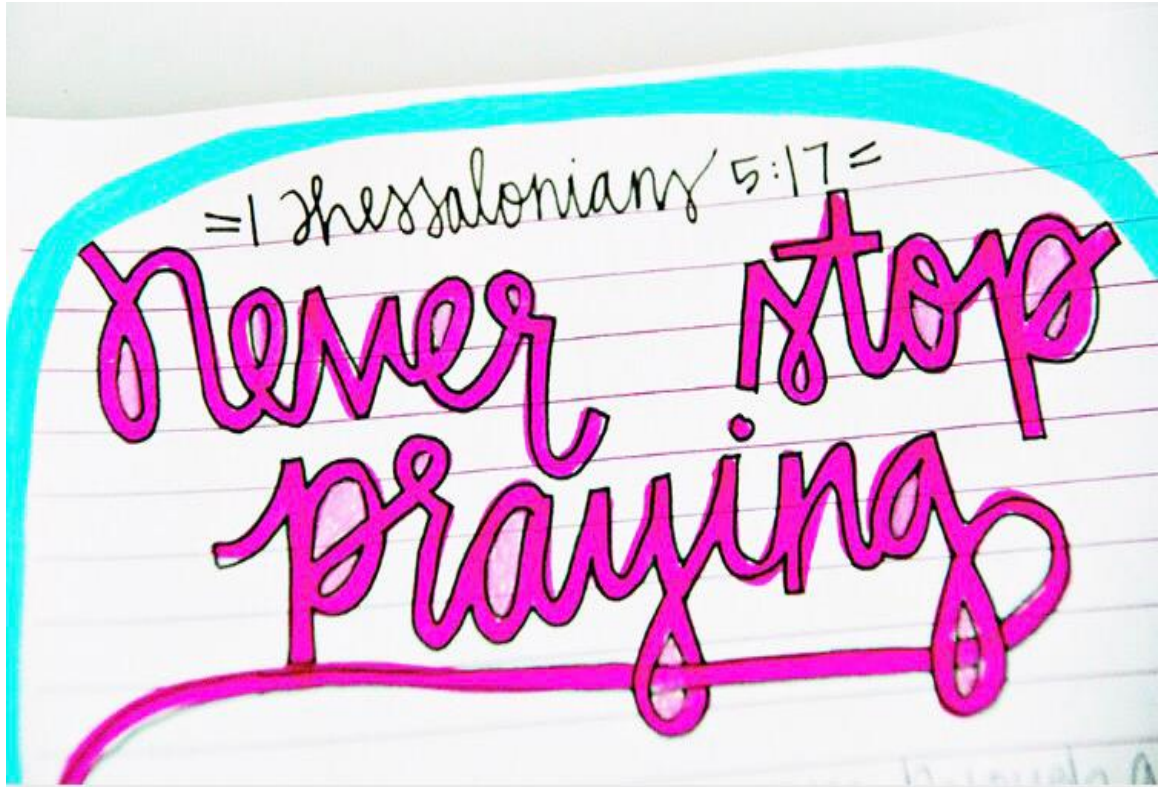 =1 Thessalonians 5:17=
Never stop
praying